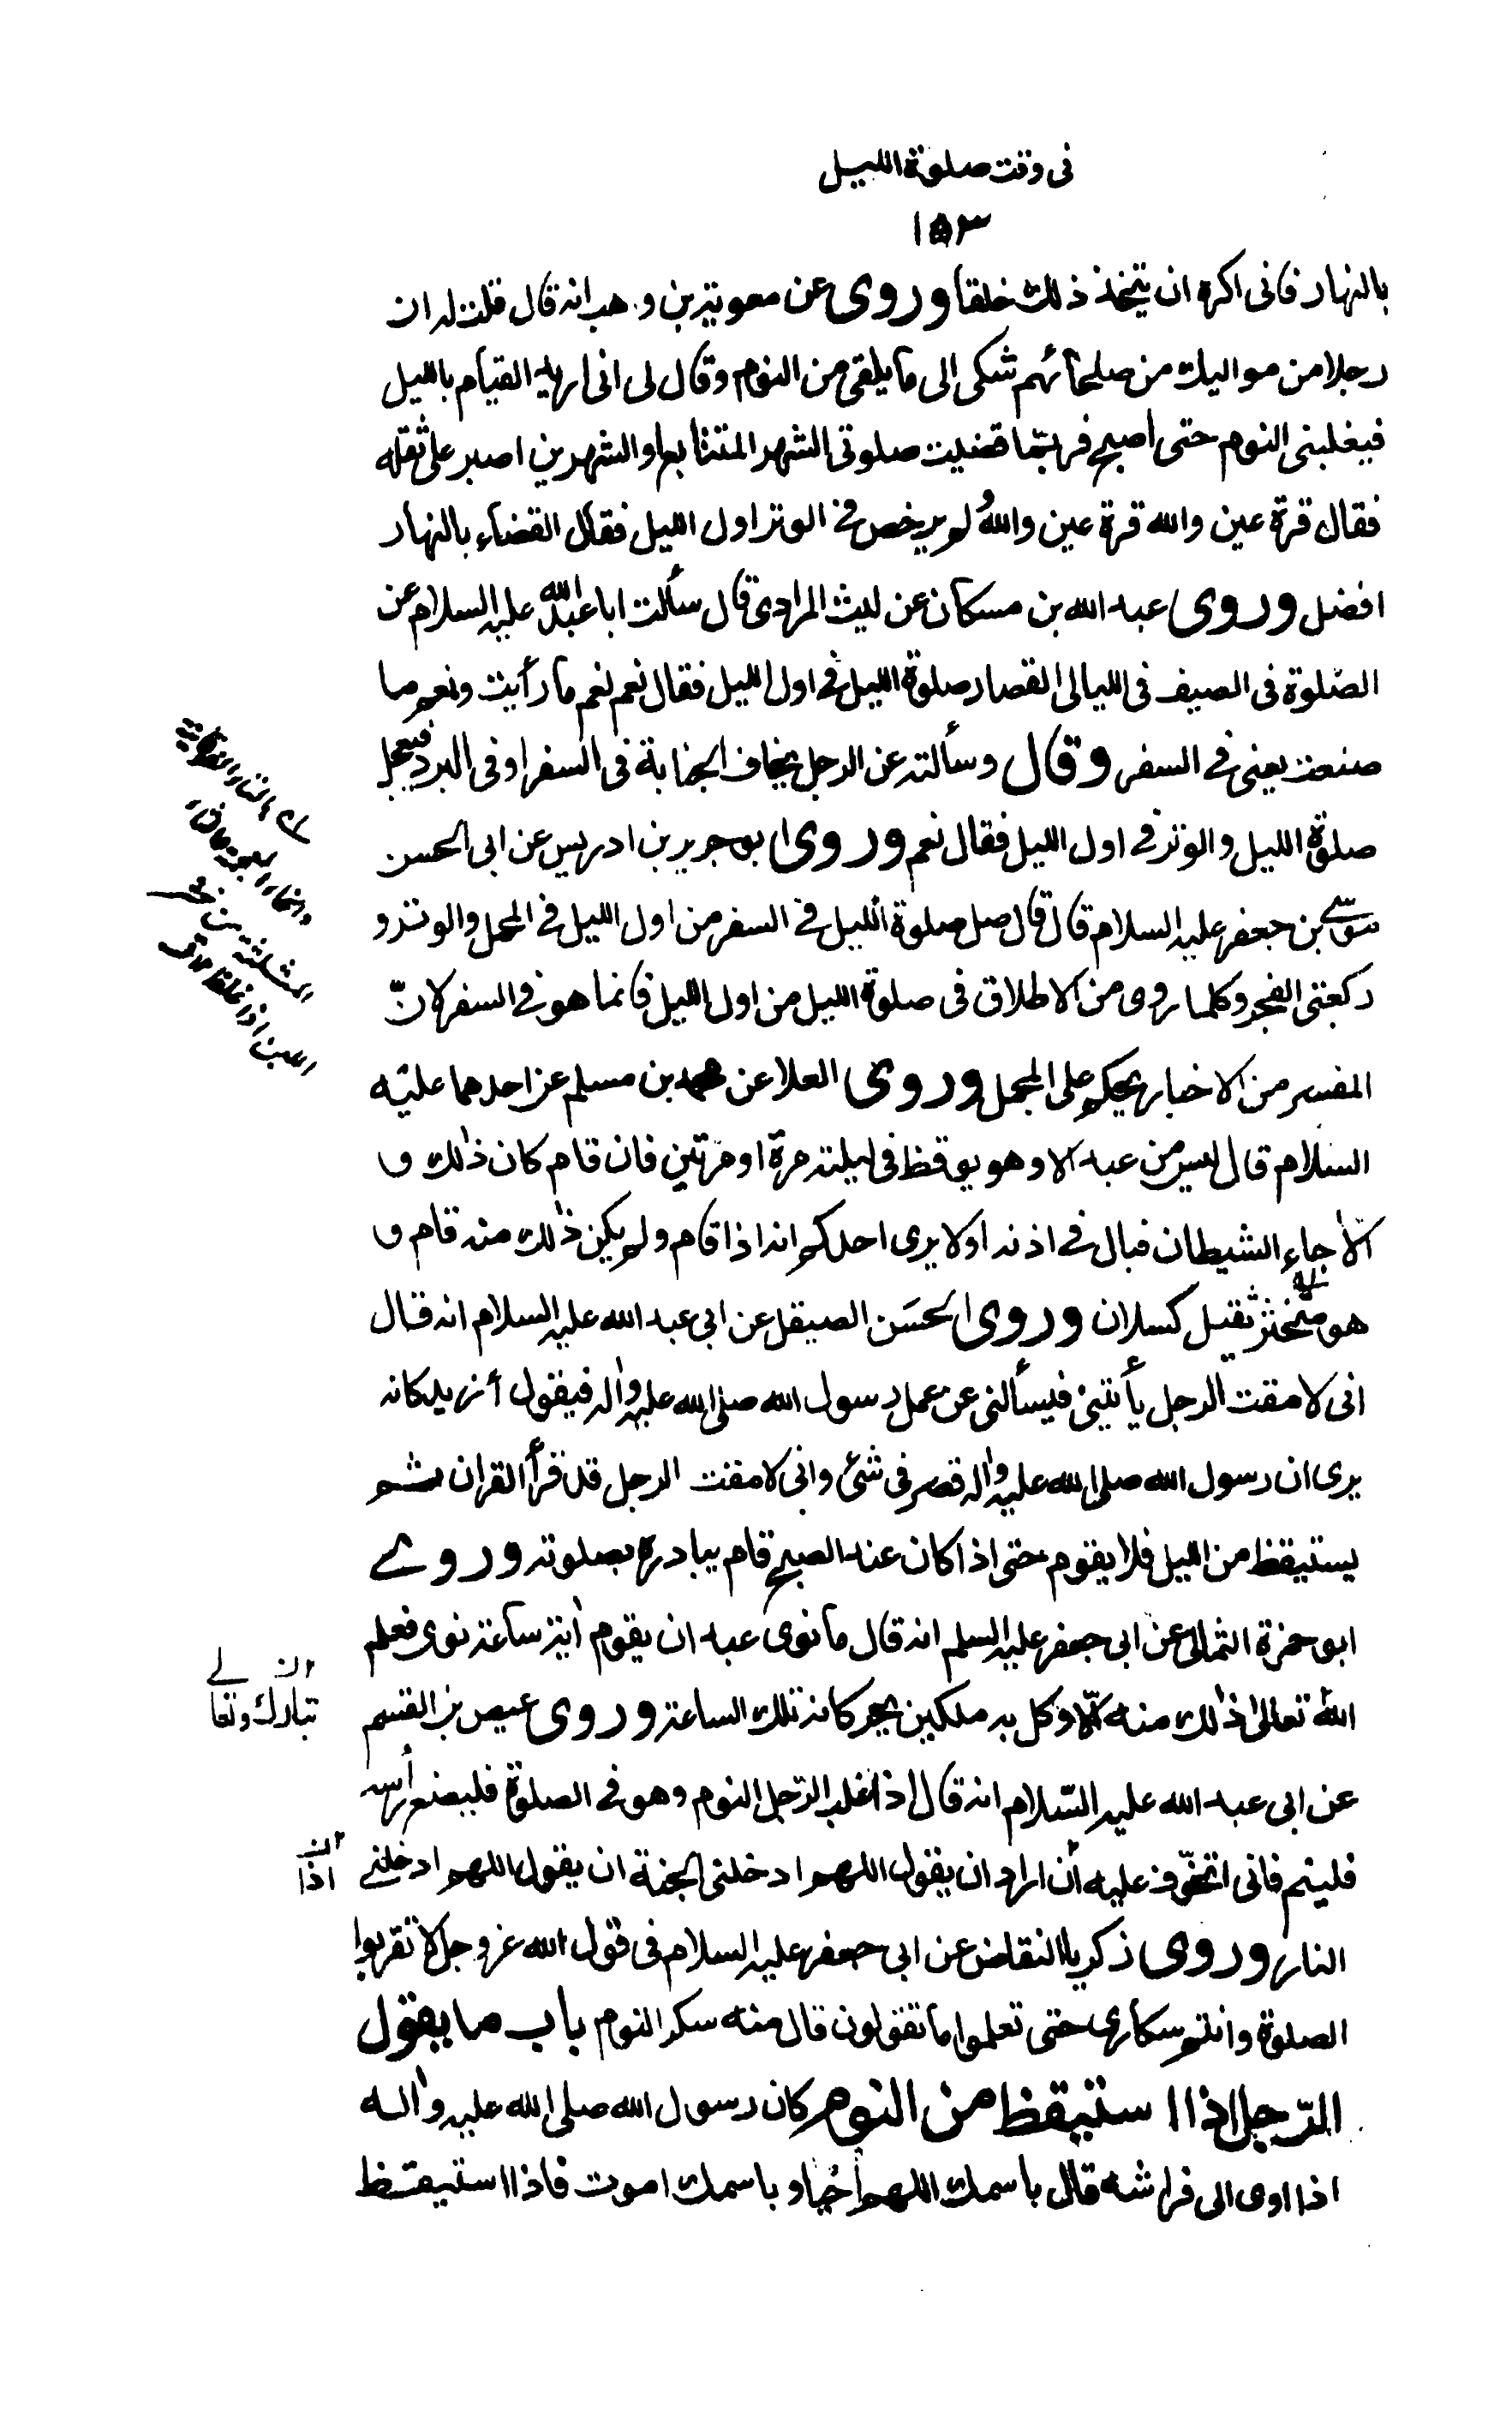 فى وقت صلوة الليل
١٥٣
بالنهار فانى اكره ان يتخذ ذلك خلقا وروى عن معوية بن وهب انه قال قلت له ان
رجلا من مواليك من صلحائهم شكى الى ما يلقى من النوم وقال لى انى اريد القيام بالليل
فيغلبنى النوم حتى اصبح فربما قضيت صلوتى الشهر المتتابع او الشهرين اصبر على ثقله
فقال قرة عين والله قرة عين واللهُ ولم يرخص فى الوتر اول الليل فقال القضاء بالنهار
افضل وروى عبد الله بن مسكان عن ليث المرادى قال سألت ابا عبد الله عليه السلام عن
الصّلوة فى الصيف فى الليالى القصار صلوة الليل فى اول الليل فقال نعم نعم ما رأيت ونعم ما
صنعت يعنى فى السفر وقال وسألته عن الرجل يخاف الجنابة فى السفر او فى البرد فيعجل
صلوة الليل والوتر فى اول الليل فقال نعم وروى ابو جرير بن ادريس عن ابى الحسن
موسى بن جعفر عليه السلام قال قال صل صلوة الليل فى السفر من اول الليل فى المحمل والوتر و
ركعتى الفجر وكلما روى من الاطلاق فى صلوة الليل من اول الليل فانما هو فى السفر لانّ
المفسر من الاخبار يحكم على المجمل وروى العلا عن محمد بن مسلم عن احدهما عليه
السلام قال ليس من عبد الا وهو يوقظ فى ليلته مرة او مرتين فان قام كان ذلك و
الّا جاء الشيطان فبال فى اذنه اولا يرى احدكم انه اذا قام ولم يكن ذلك منه قام و
هو متخثر ثقيل كسلان وروى الحسَن الصيقل عن ابى عبد الله عليه السلام انه قال
انى لامقت الرجل يأتينى فيسألنى عن عمل رسول الله صلى الله عليه واله فيقول أزيد كانه
يرى ان رسول الله صلى الله عليه واله قصر فى شئ وانى لامقت الرجل قد قرأ القران ثم
يستيقظ من الليل فلا يقوم حتى اذا كان عند الصبح قام يبادره بصلوته وروى
ابو حمزة الثمالى عن ابى جعفر عليه السلم انه قال ما نوى عبد ان يقوم اية ساعة نوى فعلم
الله تعالى ذلك منه الّا وكل به ملكين يحركانه تلك الساعة وروى عيص بن القسم
تبارك وتعالى
عن ابى عبد الله عليه السّلام انه قال اذا غلب الرّجل النوم وهو فى الصلوة فليضع رأسه
فلينم فانى اتخوّف عليه أن اراد ان يقول اللهم ادخلنى الجنة ان يقول اللهم ادخلنى
اذا
النار وروى زكريا النقاض عن ابى جعفر عليه السلام فى قول الله عز وجل لا تقربوا
الصلوة وانتم سكارى حتى تعلموا ما تقولون قال منه سكر النوم باب ما يقول
الرّجل اذا استيقظ من النوم كان رسول الله صلى الله عليه واله
اذا اوى الى فراشه قال باسمك اللهم أحيا وباسمك اموت فاذا استيقظ